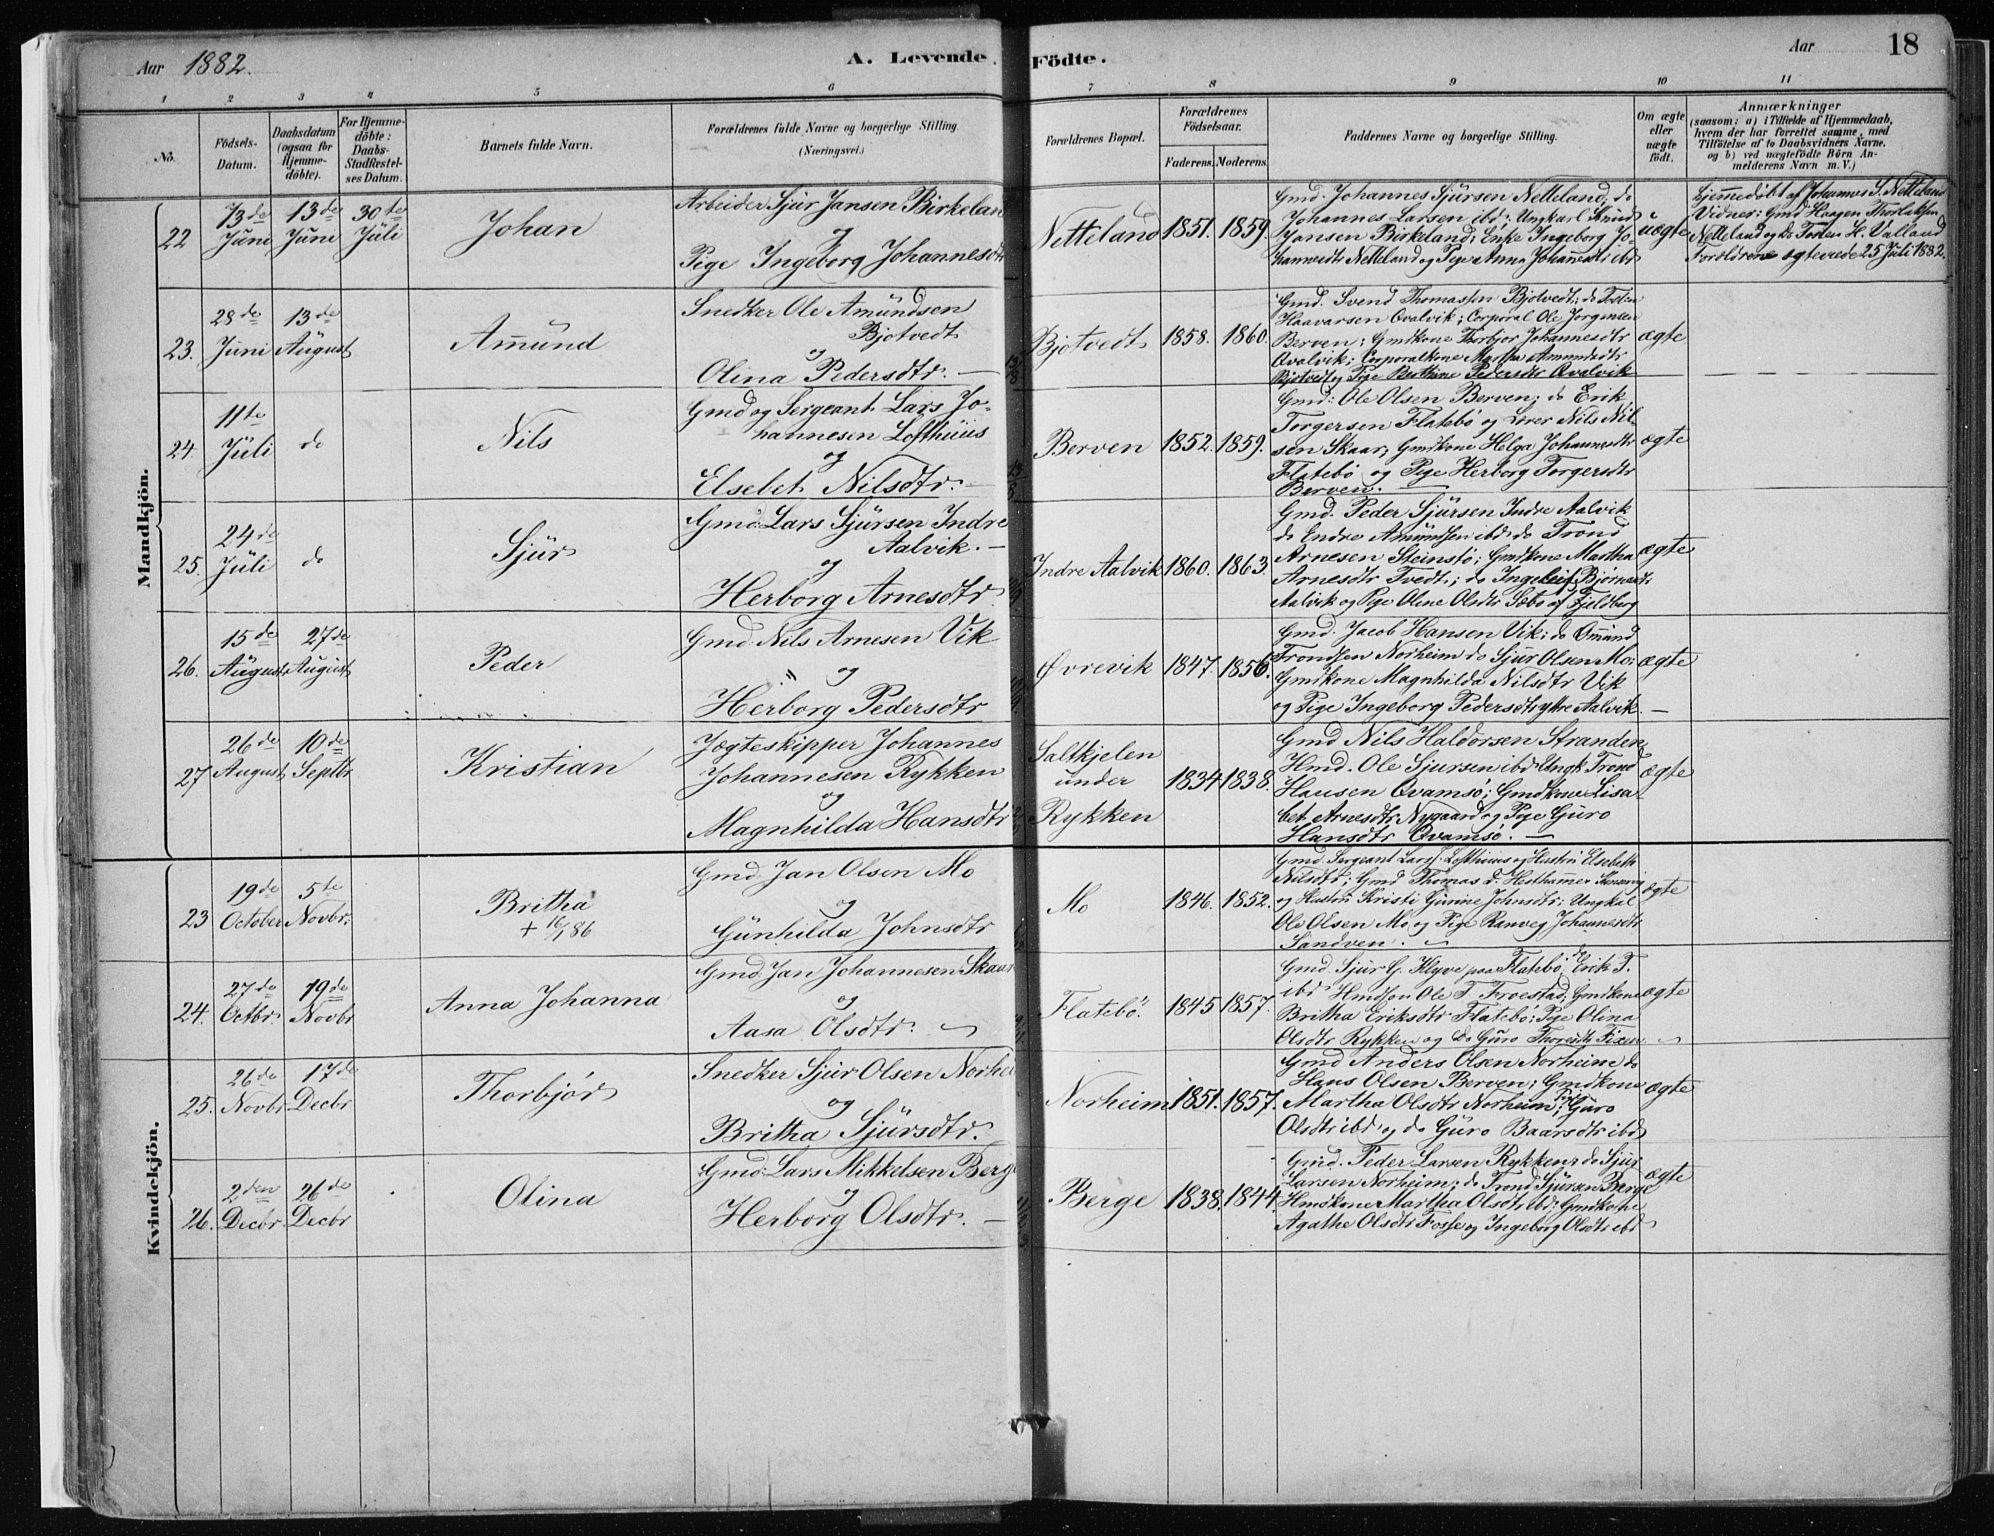 Aar 1882.
A. Levende Födte.
Aar
18
1 2 3 4 5 6 7 8 9 10 11
No.
Födsels-
Datum.
Daabsdatum
(ogsaa for
Hjemme-
döbte).
For Hjemme-
döbte:
Daabs-
Stadfæstel-
ses Datum.
Barnets fulde Navn.
Forældrenes fulde Navne og borgerlige Stilling
(Næringsvei.)
Forældrenes Bopæl.
Forældrenes
Födselsaar.
Faderens. Moderens.
Faddernes Navne og borgerlige Stilling.
Om ægte
eller
uægte
födt.
Anmærkninger
(saasom: a) i Tilfælde af Hjemmedaab,
hvem der har forrettet samme, med
Tilföielse af to Daabsvidners Navne.
og b) ved uægtefödte Börn An-
melderens Navn m. V.)
Mandkjön.
22
13de
Juni
13de
Juni
30te
Juli
Johan
Arbeider Sjur Jansen Birkelan
og
Pige Ingeborg Johannesdtr
Netteland
1851.
1859
Gmd. Johannes Sjursen Netteland; do
Johannes Larsen ibd: Ungkarl
Jansen Birkeland; Enke Ingeborg Jo-
hannesdtr Netteland og Pige Anna Johannesdtr ibd
uægte
Hjemmedøbt af Johannes S. Netteland
Vidner: Gmd Haagen Thorlaksen
Netteland og do Torsten H. Valland
Forældrene ægteviede 25 Juli 1882.
23.
28de
Juni
13de
August
Amund
Snedker Ole Amundsen
Bjotvedt
og
Olina Pedersdtr. —
Bjotvedt
1858.
1860.
Gmd. Svend Thomassen Bjotvedt; do
Haavarsen Qvalvik; Corporal Ole Jorgensen
Berven; Gmdkone Thorbjor Johannesdtr
Qvalvik; Corporalkone Martha Amundsdtr
Bjotvedt og Pige Berthine Pedersdtr Qvalvik
ægte
24.
11te
Juli
do
Nils
Gmd og Sergeant Lars Jo-
hannesen Lofthuus
og
Elsebet Nilsdtr.
Berven
1852.
1859.
Gmd: Ole Olsen Berven; do Erik
Torgersen Flatebö og Lærer Nils Nil-
sen Skaar; Gmdkone Helga Johannesdtr
Flatebö og Pige Herborg Torgersdtr
Berven.
ægte
25.
24de
Juli
do
Sjur
Gmd: Lars Sjursen Indre
Aalvik. —
og
Herborg Arnesdtr
Indre Aalvik
1860.
1863.
Gmd. Peder Sjursen Indre Aalvik
do Endre Amundsen ibd: do Trond
Arnesen Steinstø; Gmdkone Martha
Arnesdtr Tvedt; do Ingeleif Bjørnesdtr
Aalvik og Pige Oline Olsdtr Sæbø af Fjeldberg
ægte
26.
15de
August
27de
August
Peder
Gmd. Nils Arnesen Vik
og
Herborg Pedersdtr
Øvrevik
1847.
1856.
Gmd. Jacob Hansen Vik; do Omund
Trondsen Norheim do Sjur Olsen Mo;
Gmdkone Magnhilda Nilsdtr Vik
og Pige Ingeborg Pedersdtr ytre Aalvik. —
ægte
27
26de
August
10de
Septbr
Kristian
Jægteskipper Johannes
Johannesen Rykken
og
Magnhilda Hansdtr
Saltkjelen
under
Rykken
1834
1838.
Gmd Nils Haldorsen Stranden
Hmd. Ole Sjursen ibd: Ungk. Trond
Hansen Qvamsø; Gmdkone Lisa-
bet Arnesdtr Nygaard og Pige Guro
Hansdtr Qvamsø. —
ægte
Kvindekjön.
23
19de
October
5te
Novbr.
Britha
+ 16/1 86
Gmd Jan Olsen Mo
og
Gunhilda Johnsdtr
Mo
1846.
1852.
Gmd. Sergeant Lars J. Lofthuus og Hustru Elsebeth
Nilsdtr; Gmd Thomas d. Hesthammer
og Hustru Kristi Gurine Johnsdtr; Ungkl
Ole Olsen Mo og Pige Ranveg Johannesdtr
Sandven.
ægte
24.
27de
Octbr.
19de
Novbr
Anna Johanna
Gmd. Jan Johannesen Skaar
og
Aasa Olsdtr.
Flatebö.
1845
1857.
Gmd. Sjur G. Klyve paa Flatebö do Erik T.
ibd Hmdson Ole T. Froestad; Gmdkone
Britha Eriksdtr Flatebö; Pige Olina
Olsdtr Rykken og do Guro Thoresdtr Fixen
ægte
25.
26de
Novbr
17de
Decbr
Thorbjör
Snedker Sjur Olsen Norhei
og
Britha Sjursdtr.
Norheim
1851.
1857.
Gmd Anders Olsen Norheim do
Hans Olsen Berven; Gmdkone
Martha Olsdtr Norheim; Pige Guro
Olsdtr ibd og do Guro Baarsdtr ibd
ægte
26.
2den
Decbr.
26de
Decbr
Olina
Gmd: Lars Mikkelsen Berg
og
Herborg Olsdtr. —
Berge
1838.
1844
Gmd. Peder Larsen Rykken; do Sjur
Larsen Norheim; do Trond Sjursen Berge
Hmdkone Martha Olsdtr ibd; Gmdkone
Agathe Olsdtr Fosse og Ingeborg Olsdtr ibd
ægte